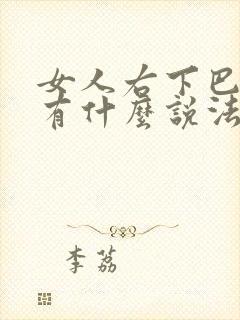 女人右下巴
有什麼說法
李荔